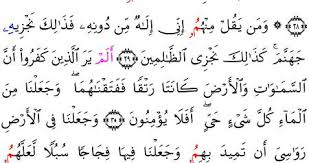 ﴿٢٨﴾ ۞ وَمَن يَقُلْ مِنْهُمْ إِنِّي إِلَٰهٌ مِّن دُونِهِ فَذَٰلِكَ نَجْزِيهِ
جَهَنَّمَ كَذَٰلِكَ نَجْزِي الظَّٰلِمِينَ ﴿٢٩﴾ أَلَمْ يَرَ الَّذِينَ كَفَرُوٓا۟ أَنَّ
السَّمَٰوَٰتِ وَالْأَرْضَ كَانَتَا رَتْقًا فَفَتَقْنَٰهُمَا وَجَعَلْنَا مِنَ
الْمَآءِ كُلَّ شَيْءٍ حَيٍّ أَفَلَا يُؤْمِنُونَ ﴿٣٠﴾ وَجَعَلْنَا فِي الْأَرْضِ
رَوَٰسِيَ أَن تَمِيدَ بِهِمْ وَجَعَلْنَا فِيهَا فِجَاجًا سُبُلًا لَّعَلَّهُمْ